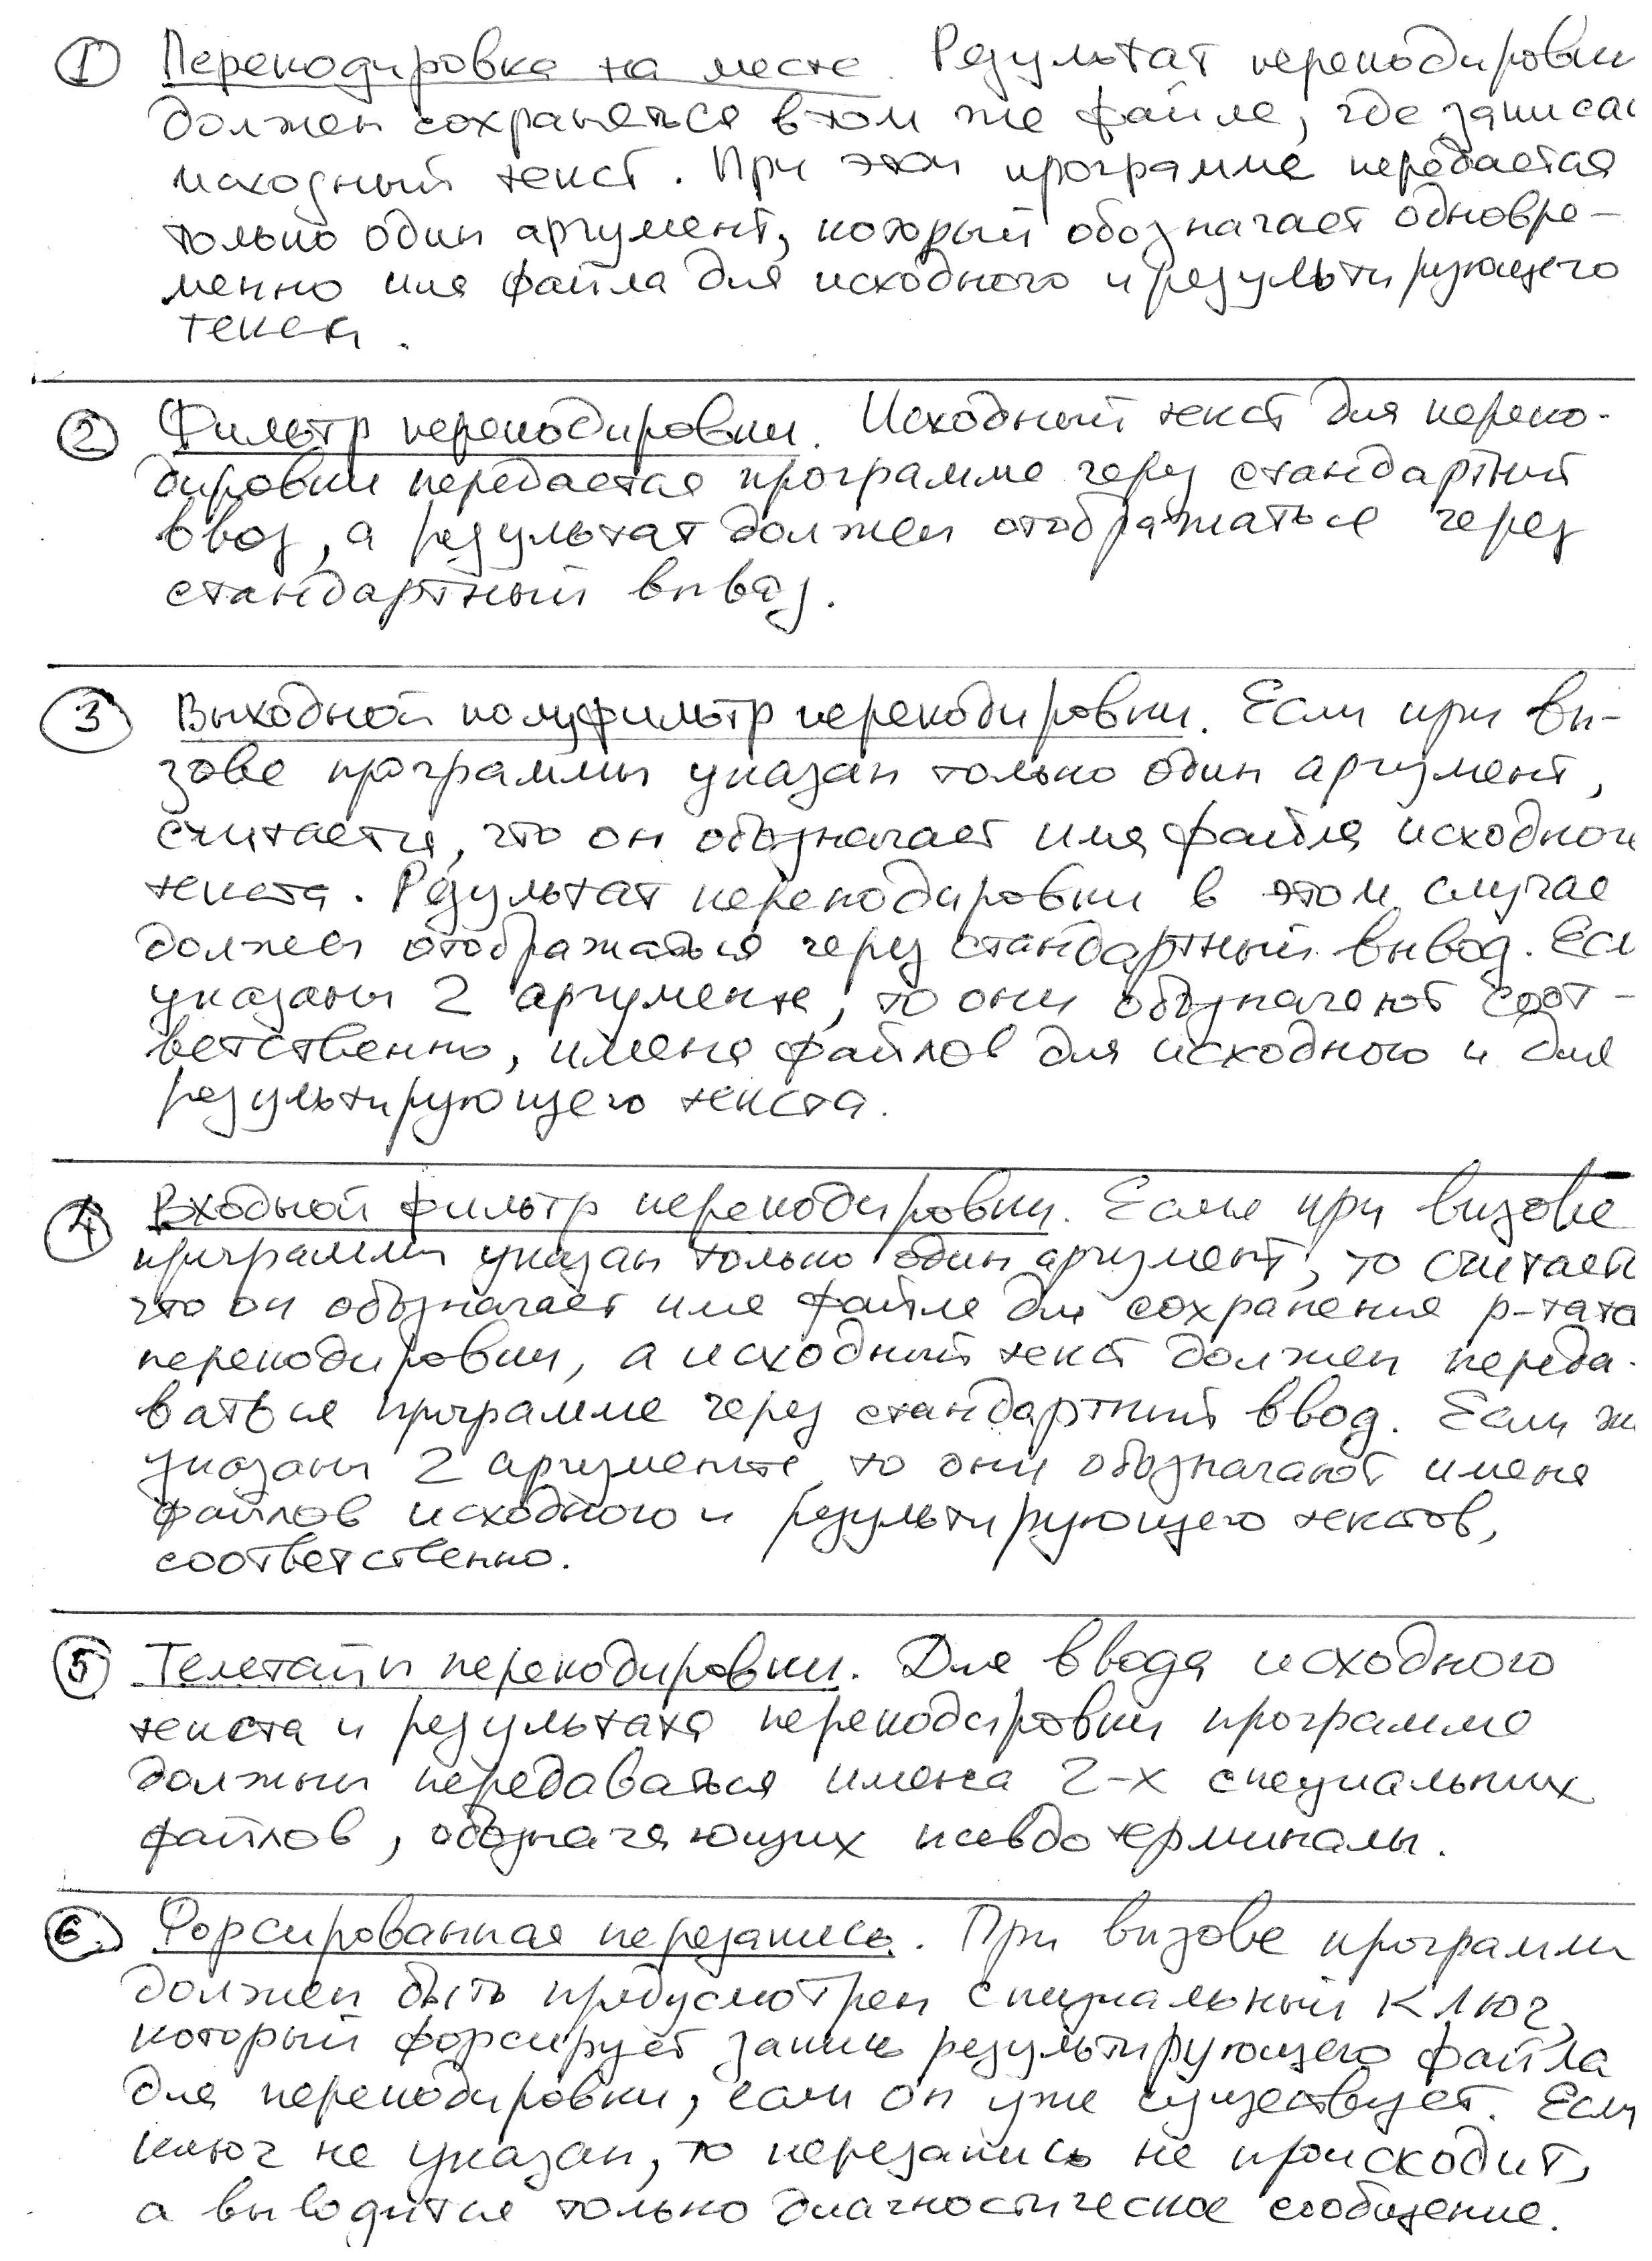 ① Перекодировка на месте. Результат перекодировки
должен сохраняться в том же файле, где записан
исходный текст. При этом программе передается
только один аргумент, который обозначает одновре-
менно имя файла для исходного и результирующего
текста.
② Фильтр перекодировки. Исходный текст для переко-
дировки передается программе через стандартный
ввод, а результат должен отображаться через
стандартный вывод.
③ Выходной полуфильтр перекодировки. Если при вы-
зове программы указан только один аргумент,
считается, что он обозначает имя файла исходного
текста. Результат перекодировки в этом случае
должен отображаться через стандартный вывод. Есл
указаны 2 аргумента, то они обозначают соот-
ветственно, имена файлов для исходного и для
результирующего текста.
④ Входной фильтр перекодировки. Если при вызове
программы указан только один аргумент, то считает
что он обозначает имя файла для сохранения р-тата
перекодировки, а исходный текст должен переда-
ваться программе через стандартный ввод. Если ж
указаны 2 аргумента, то они обозначают имена
файлов исходного и результирующего текстов,
соответственно.
⑤ Телетайп перекодировки. Для ввода исходного
текста и результата перекодировки программе
должны передаваться имена 2-х специальных
файлов, обозначающих псевдотерминалы.
⑥ Форсированная перезапись. При вызове программы
должен быть предусмотрен специальный ключ,
который форсирует запись результирующего файла
для перекодировки, если он уже существует. Если
ключ не указан, то перезапись не происходит,
а выводится только диагностическое сообщение.